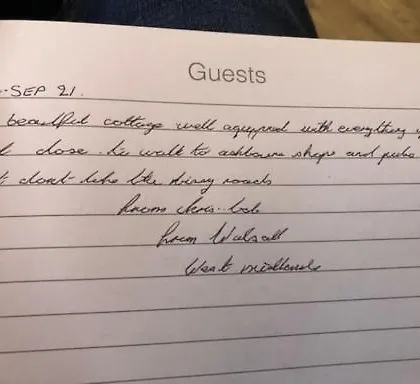 Guests
-SEP 21.
beautful cottage well aquipped with everything
close to walk to ashbourne shops and pubs
dont like the windy roads
from chris-bob
from Walsall
West midlands